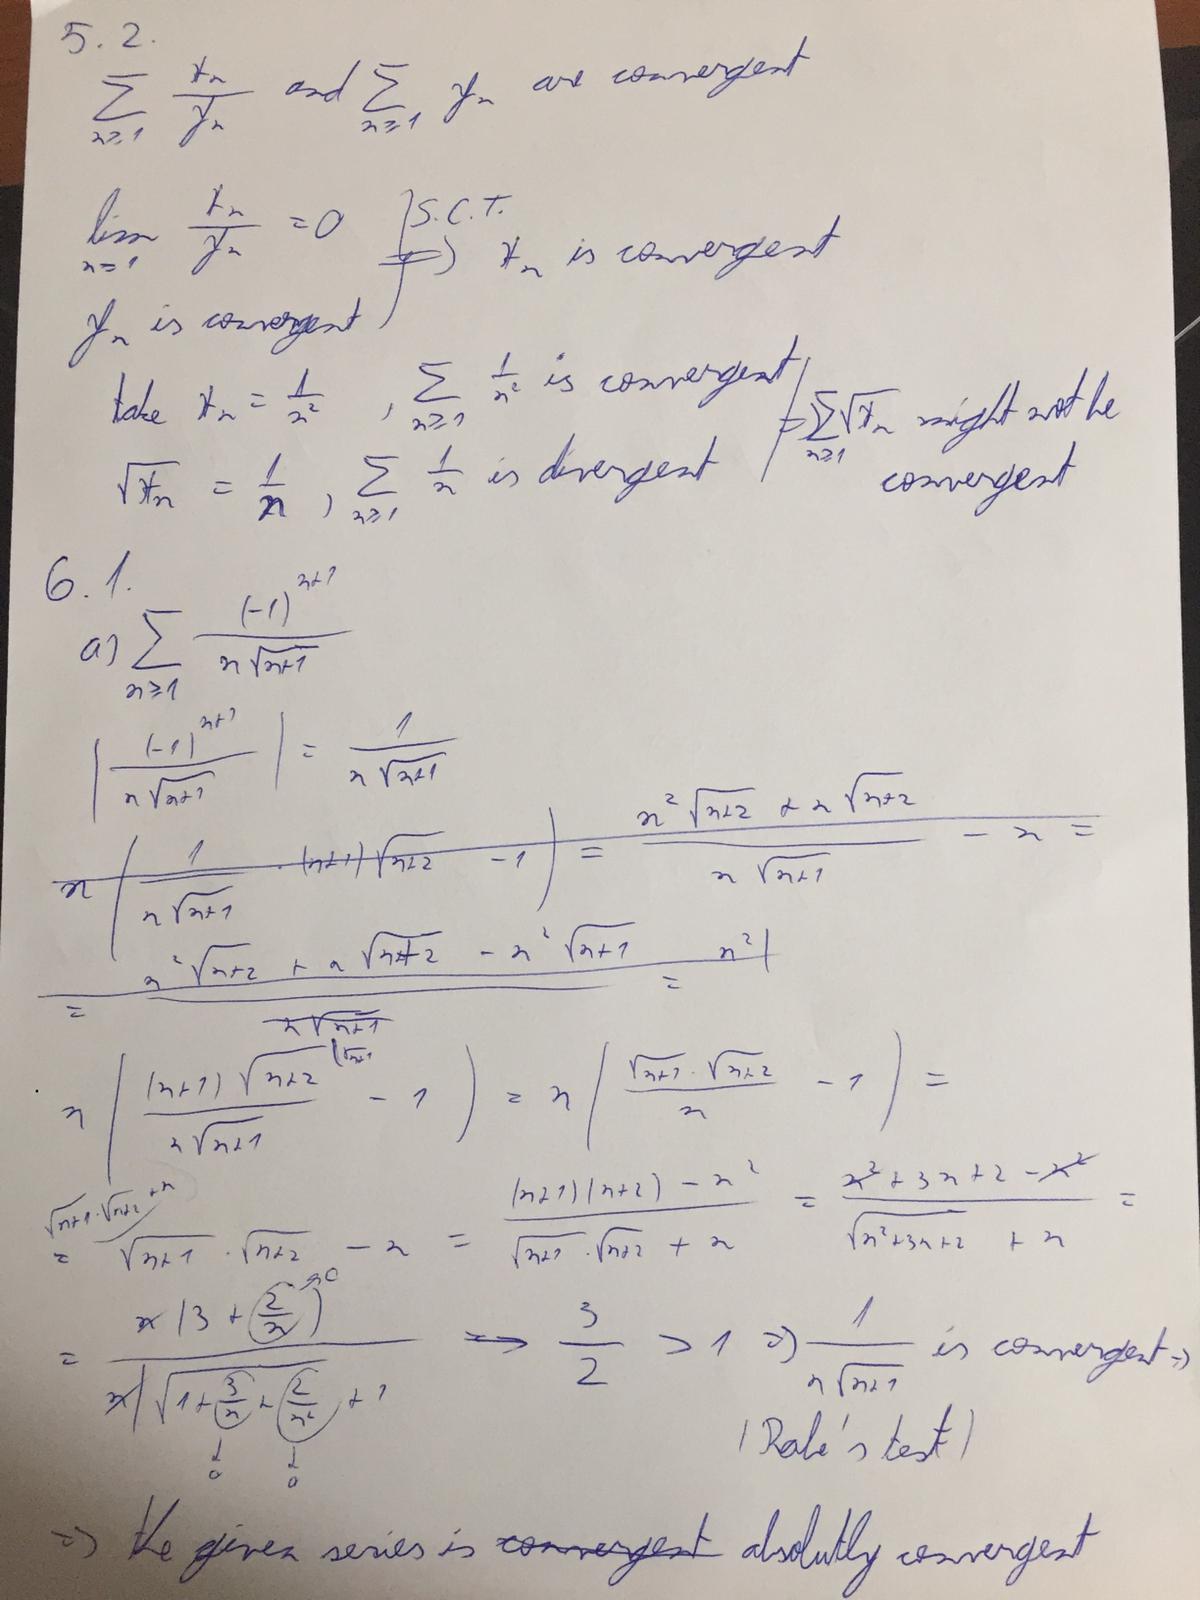 5.2.
∑_{n≥1} x_n/y_n and ∑_{n≥1} y_n are convergent
lim_{n=1} x_n/y_n = 0 | S.C.T. ⇒ x_n is convergent
y_n is convergent
take x_n = 1/n², ∑_{n≥1} 1/n² is convergent | ⇒ ∑_{n≥1} √x_n might not be
√x_n = 1/n, ∑_{n≥1} 1/n is divergent | convergent
6.1.
a) ∑_{n≥1} (-1)^{n+1}/(n√(n+1))
|(-1)^{n+1}/(n√(n+1))| = 1/(n√(n+1))
n(1/(n√(n+1)) · (n+1)√(n+2) - 1) = (n²√(n+2) + n√(n+2))/(n√(n+1)) - n =
= (n²√(n+2) + n√(n+2) - n²√(n+1))/(n√(n+1)) = n²(
n((n+1)√(n+2)/(n√(n+1)) - 1) = n(√(n+1)·√(n+2)/n - 1) =
= √(n+1)·√(n+2) - n = ((n+1)(n+2) - n²)/(√(n+1)·√(n+2) + n) = (n² + 3n + 2 - n²)/(√(n²+3n+2) + n) =
= n(3 + 2/n)/(n(√(1 + 3/n + 2/n²) + 1 → 3/2 > 1 ⇒ 1/(n√(n+1)) is convergent ⇒
(Rabe's test)
⇒ the given series is convergent absolutly convergent